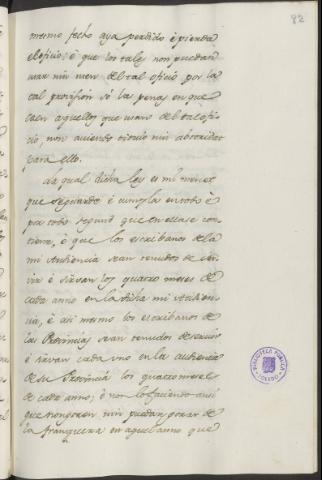 82
mesmo fecho aya perdido è pierda
el oficio: è que los tales non puedan
usar nin usen del tal oficio por la
tal provision só las penas en que
caen aquellos que usan del tal ofi-
cio, non aviendo titulo nin abtoridat
para ello.
La qual dicha ley es mi mercet
que se guarde è cumpla en todo è
por todo segund que en ella se con-
tiene, è que los escribanos de la
mi Audiencia sean tenudos de ser-
vir è sirvan los quatro meses de
cada anno en la dicha mi Audien-
cia, è asi mesmo los escribanos de
las Provincias sean tenudos de servir
è sirvan cada uno en la audiencia
de su Provincia los quatro meses
de cada anno; è non lo faciendo ansi
que non gocen nin puedan gozar de
la franqueza en aquel anno que
BIBLIOTECA PUBLICA
TOLEDO